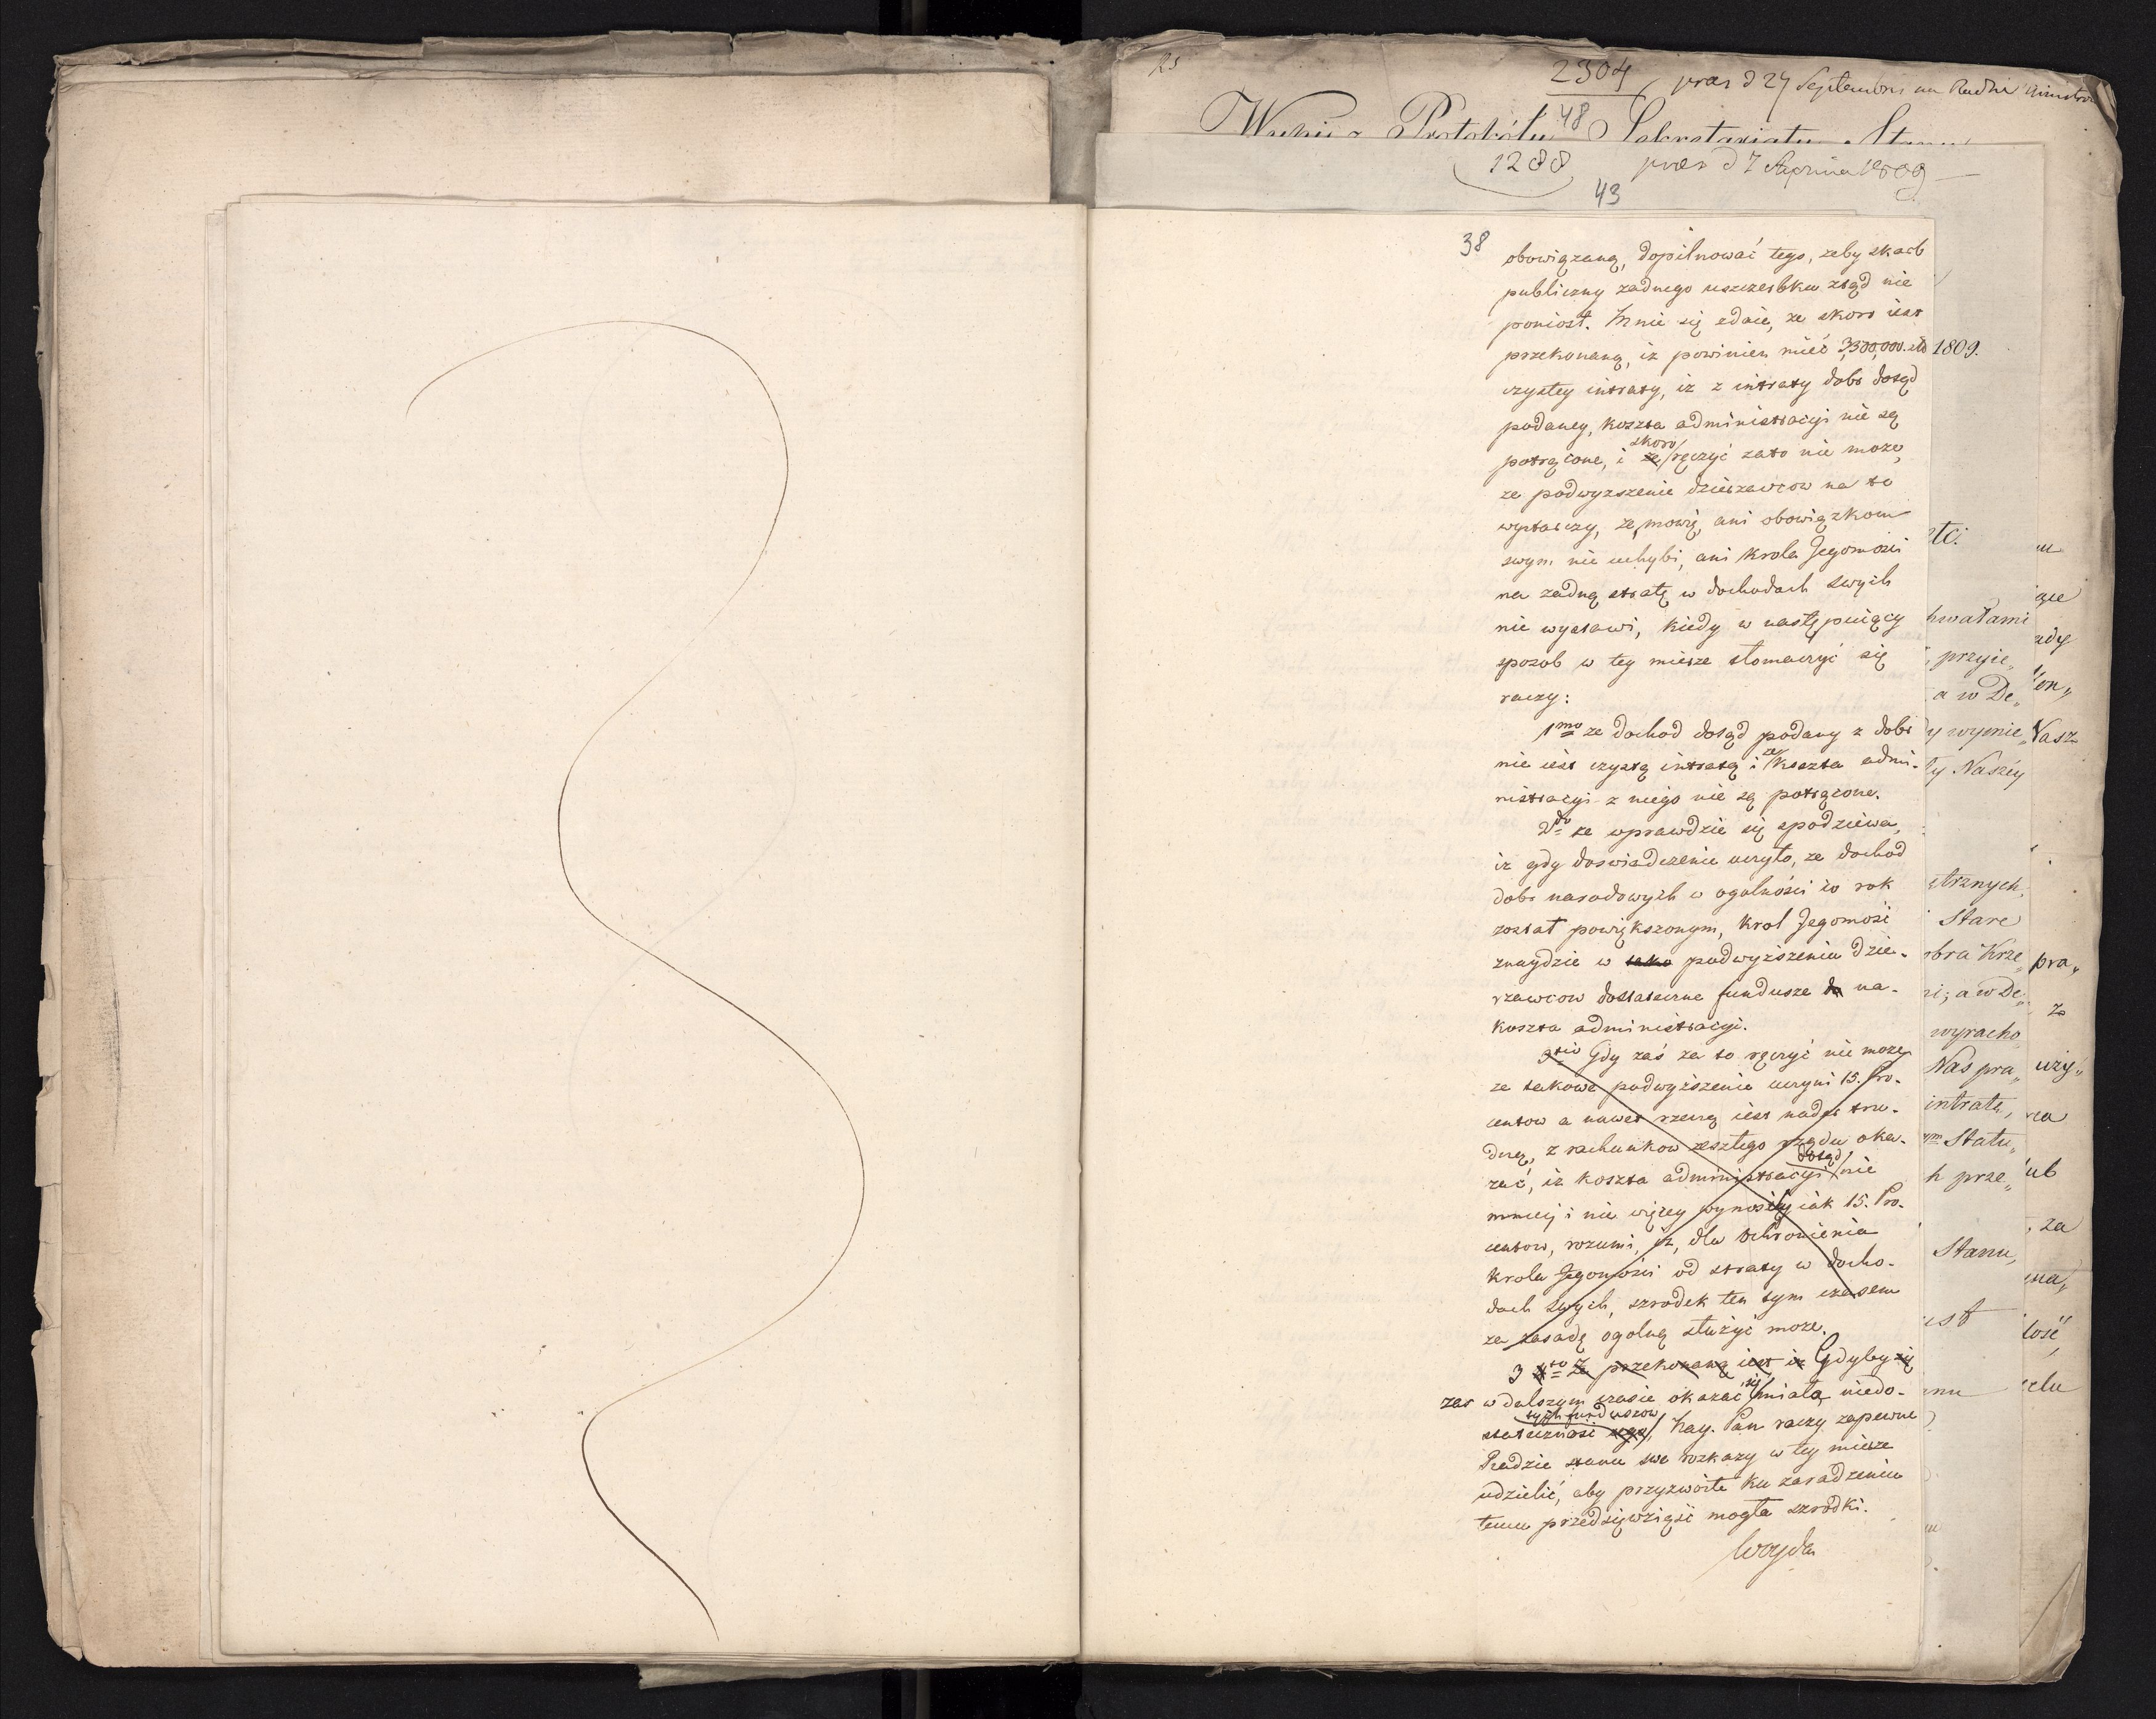 25
2304 præs d 27 Septembris na Radzie
48
1288 præs d 7 Aprilis 1809
43
38
obowiązaną, dopilnować tego, zeby skarb
publiczny zadnego uszczerbku ztąd nie
poniosł. Mnie się zdaie, ze skoro iest
przekonaną, iz powinien mieć 3,300,000. złt
czystey intraty, iz z intraty dobr dotąd
podaney, koszta administracyi nie są
potrącone, i ze skoro ręczyć zato nie moze,
ze podwyzszenie dzierzawcow na to
wystarczy, ze, mowię, ani obowiązkom
swym nie uchybi, ani Krola Jegomości
na zadną stratę w dochodach swych
nie wystawi, kiedy w następuiący
sposob w tey mierze tłomaczyć się
raczy:
1mo ze dochod dotąd podany z dobr
nie iest czystą intratą i ze koszta admi-
nistracyi z niego nie są potrącone.
2do ze wprawdzie się spodziewa,
iz gdy doswiadczenie uczyło, ze dochod
dobr narodowych w ogolności co rok
został powiększonym, Krol Jegomość
znaydzie w podwyższeniu dzie-
rzawcow dostateczne fundusze do na-
koszta administracyi.
3tio Gdy zaś za to ręczyć nie może
ze takowe podwyższenie uczyni 15. Pro-
centow a nawet rzeczą iest nader tru-
dną, z rachunkow zeszłego rządu oka-
zać, iz koszta administracyi dotąd nie
mniej i nie więcey wynosiły iak 15. Pro-
centow, rozumi, iz, dla ochronienia
Krola Jegomości od straty w docho-
dach swych, szrodek ten tym czasem
za zasadę ogolną służyć moze.
3 4to Ze przekonaną iest iz Gdyby się
zas w dalszym czasie okazać się miała niedo-
stateczność tych funduszow, Nay. Pan raczy zapewne
Radzie stanu swe rozkazy w tey mierze
udzielić, aby przyzwoite ku zaradzeniu
temu przedsięwziąść mogła szrodki.
1809.
hwałami
przyie„
a w De„
y wymie„
Naszéy
Stare
bra Krze„
a w De„
wyracho
Nas pra„
intratę,
Statu„
h prze„
Stanu,
Nasz
pra„
z
uży„
za